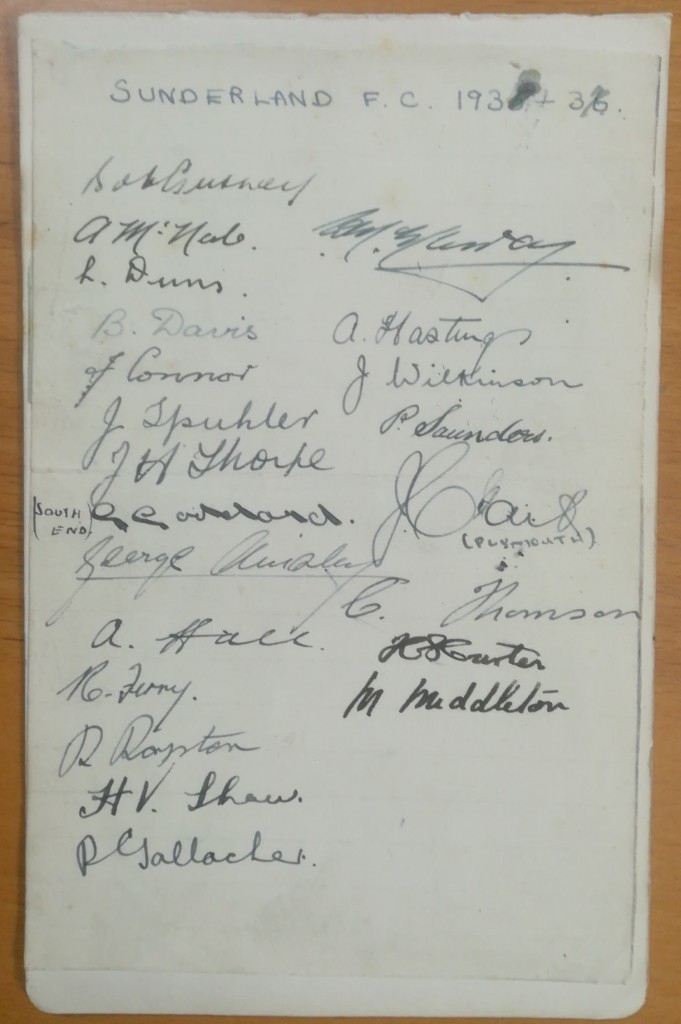 SUNDERLAND F. C. 193 + 36.
Bob Gurney
A McNab.
L. Duns.
B. Davis
A. Hastings
J Connor
J Wilkinson
J Spuhler
P. Saunders.
J H Thorpe
(SOUTH END)
J. Clark
(PLYMOUTH)
George Ainsley
C. Thomson
A. Hall.
H S Carter
R. Ferry.
M Middleton
R Royston
H V. Shaw.
P Gallacher.